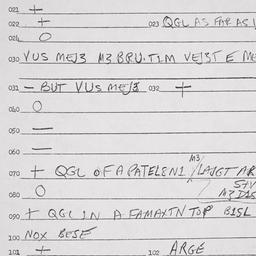 021 +
022 + 023 QGL AS FAR AS
024 O
030 VUS MEJ3 M3 BRUITIM VEJST E ME
031 – BUT VUS MEJ3 032 +
040 O
050 –
060 –
070 + QGL OF A PATELEN1 / M3 LAJGT AR
080 O M3 DIS
090 + QGL IN A FAMAXTN TOP BISL
100 NOX BESE
101 + 102 ARGE